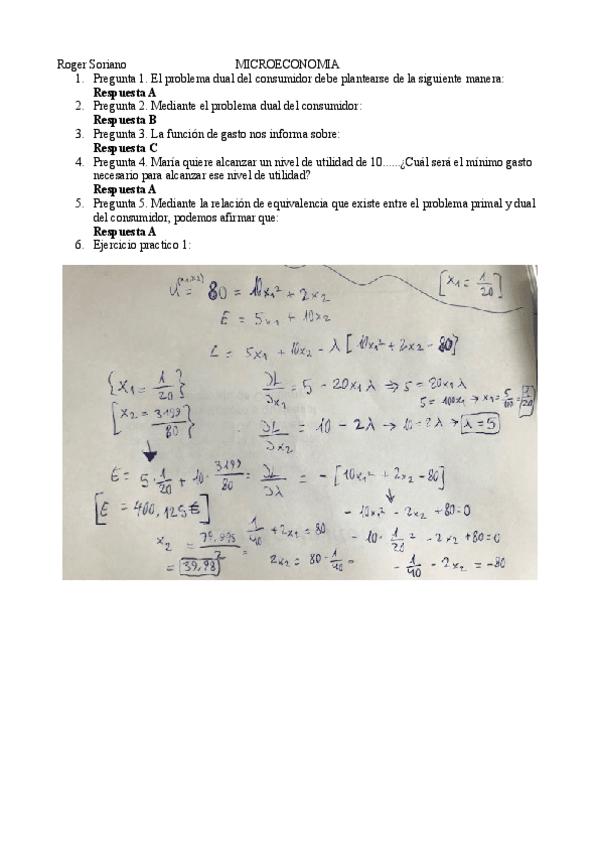 Roger Soriano MICROECONOMIA
1. Pregunta 1. El problema dual del consumidor debe plantearse de la siguiente manera:
Respuesta A
2. Pregunta 2. Mediante el problema dual del consumidor:
Respuesta B
3. Pregunta 3. La función de gasto nos informa sobre:
Respuesta C
4. Pregunta 4. María quiere alcanzar un nivel de utilidad de 10......¿Cuál será el mínimo gasto
necesario para alcanzar ese nivel de utilidad?
Respuesta A
5. Pregunta 5. Mediante la relación de equivalencia que existe entre el problema primal y dual
del consumidor, podemos afirmar que:
Respuesta A
6. Ejercicio practico 1:
U(x1,x2) = 80 = 10x1² + 2x2 [x1 = 1/20]
E = 5x1 + 10x2
L = 5x1 + 10x2 - λ [10x1² + 2x2 - 80]
{x1 = 1/20} ∂L/∂x1 = 5 - 20x1λ → 5 = 20x1λ
5 = 100x1 → x1 = 5/100 = 1/20
[x2 = 3199/80} ∂L/∂x2 = 10 - 2λ → 10 = 2λ → λ = 5
E = 5·1/20 + 10·3199/80 = ∂L/∂λ = - [10x1² + 2x2 - 80]
[E = 400,125€] - 10x1² - 2x2 + 80 = 0
x2 = 79,975/2 = 1/40 + 2x2 = 80 - 10·1/20² - 2x2 + 80 = 0
= 39,98 2x2 = 80 - 1/40 = - 1/40 - 2x2 = -80